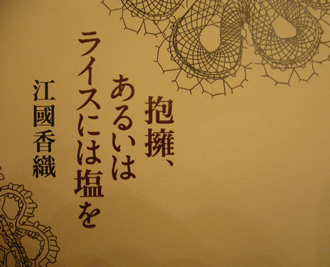 抱擁、
あるいは
ライスには塩を
江國香織